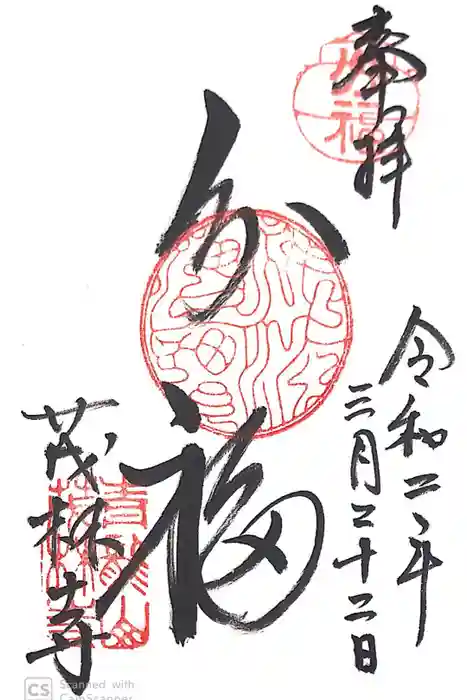 奉拝
分福
令和二年
三月二十二日
茂林寺
分福
青龍山
茂林寺
CS Scanned with
CamScanner